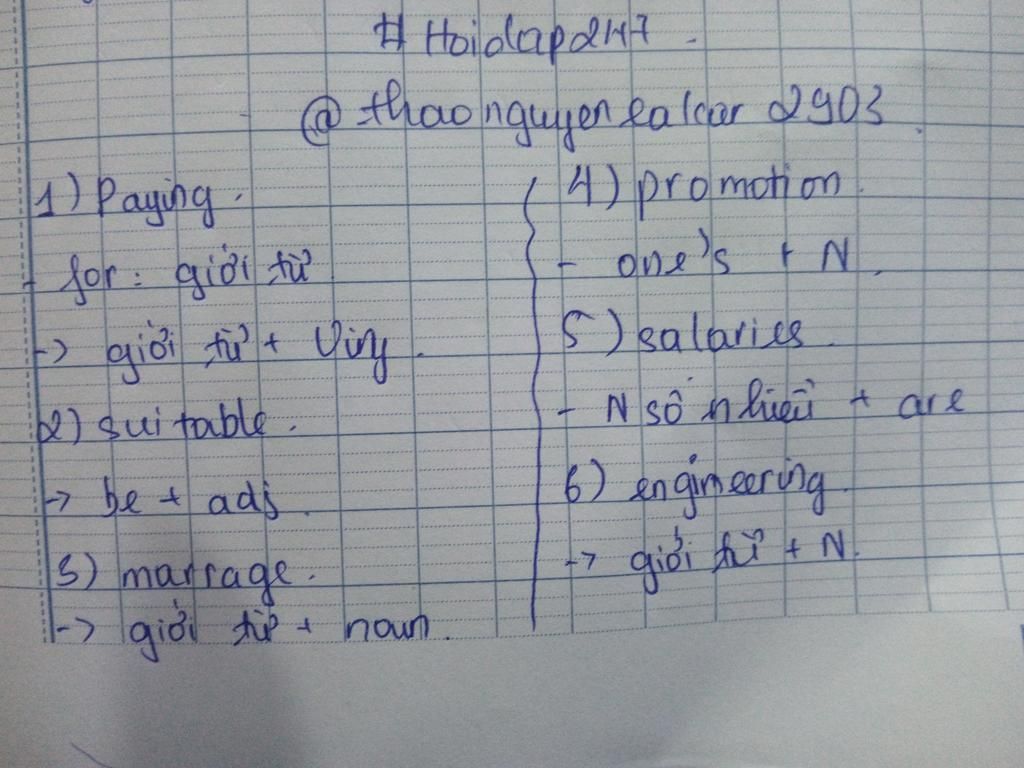 # Hoidap247.
@ thaonguyenealcar 2903.
1) Paying.
- for: giới từ
-> giới từ + Ving.
2) suitable.
-> be + adj.
3) marrage.
-> giới từ + noun.
4) promotion.
- one's + N.
5) salaries.
- N số nhiều + are
6) engineering.
-> giới từ + N.